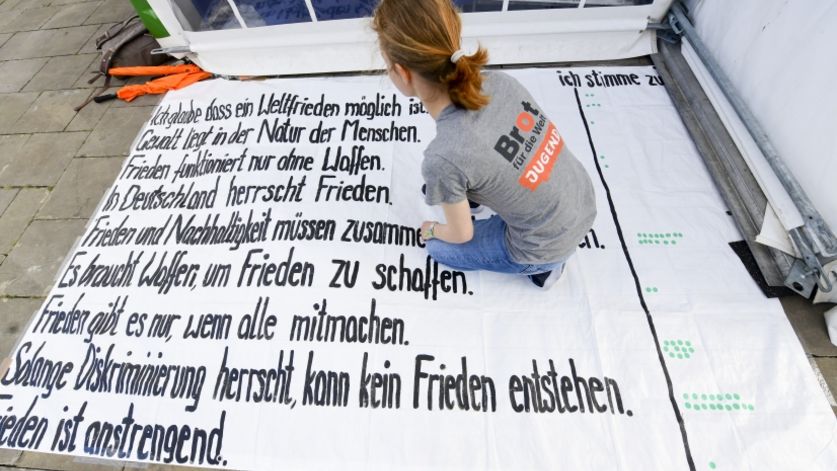 ich stimme zu
Ich glaube dass ein Weltfrieden möglich ist.
Gewalt liegt in der Natur der Menschen.
Frieden funktioniert nur ohne Waffen.
In Deutschland herrscht Frieden.
Frieden und Nachhaltigkeit müssen
Es braucht Waffen, um Frieden zu schaffen.
Frieden gibt es nur, wenn alle mitmachen.
Solange Diskriminierung herrscht, kann kein Frieden entstehen.
Frieden ist anstrengend.
Brot
für die Welt
JUGEND